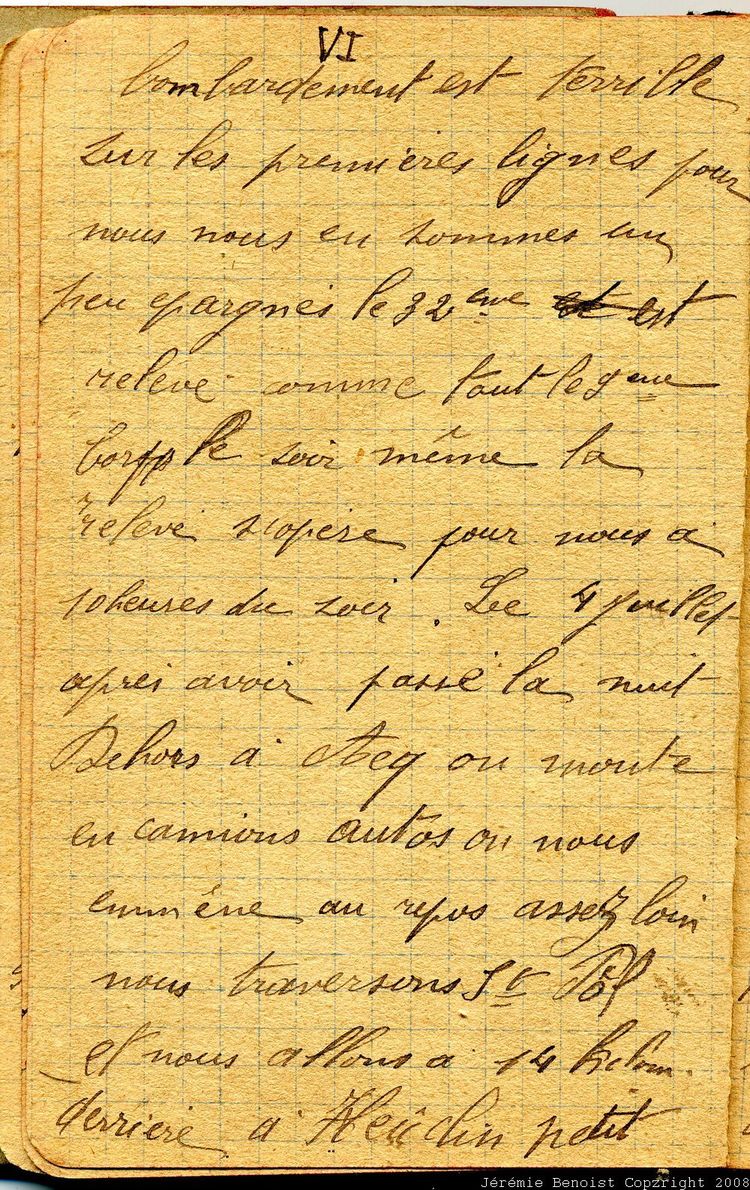 VI
bombardement est terrible
sur les premières lignes pour
nous nous en sommes un
peu epargnés le 32eme est
relevé comme tout le 9eme
Corps le soir même la
relève s'opère pour nous à
10 heures du soir. Le 4 Juillet
après avoir passé la nuit
Dehors à Acq on monte
en camions autos on nous
emmène au repos assez loin
nous traversons St Pol
et nous allons à 14 kilom.
derriere à petit
Jérémie Benoist Copyright 2008